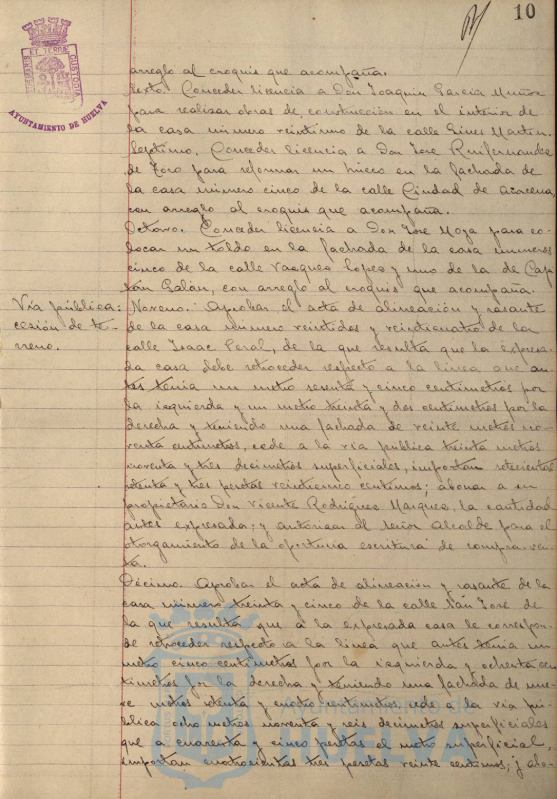 10
PORTUS MARIS ET TERRAE CUSTODIA
AYUNTAMIENTO DE HUELVA
arreglo al croquis que acompaña.
Sexto. Conceder licencia a Don Joaquin Garcia Muñoz
para realizar obras de construcción en el interior de
la casa número veintiuno de la calle Gines Martin.
Septimo. Conceder licencia a Don Jose Ruifernandez
de Toro para reformar un hueco en la fachada de
la casa número cinco de la calle Ciudad de Aracena,
con arreglo al croquis que acompaña.
Octavo. Conceder licencia a Don José Moza para co-
locar un toldo en la fachada de la casa números
cinco de la calle Vazquez Lopez y uno de la de Cap
tán Galán, con arreglo al croquis que acompaña.
Via pública:
cesión de te-
rreno.
Noveno. Aprobar el acta de alineación y rasante
de la casa número veintidos y veinticuatro de la
calle Isaac Peral, de la que resulta que la expresa
da casa debe retroceder respecto a la linea que an-
tes tenia un metro sesenta y cinco centimetros por
la izquierda y un metro treinta y dos centimetros por la
derecha y teniendo una fachada de veinte metros no-
venta centimetros, cede a la via pública treinta metros
noventa y tres decimetros superficiales, importan setecientas
setenta y tres pesetas veinticinco centimos; abonar a su
propietario Don Vicente Rodriguez Marquez, la cantidad
antes expresada; y autorizar al señor Alcalde para el
otorgamiento de la oportuna escritura de compra-ven
ta.
Décimo. Aprobar el acta de alineación y rasante de la
casa número treinta y cinco de la calle San José de
la que resulta que a la expresada casa le correspon-
de retroceder respecto a la linea que antes tenia un
metro cinco centimetros por la izquierda y ochenta cen
timetros por la derecha y teniendo una fachada de nue-
ve metros setenta y cuatro centimetros, cede a la via pú-
blica ocho metros noventa y seis decimetros superficiales
que a cuarenta y cinco pesetas el metro superficial,
importan cuatrocientas tres pesetas veinte centimos; y abo-
Ayuntamiento de
HUELVA